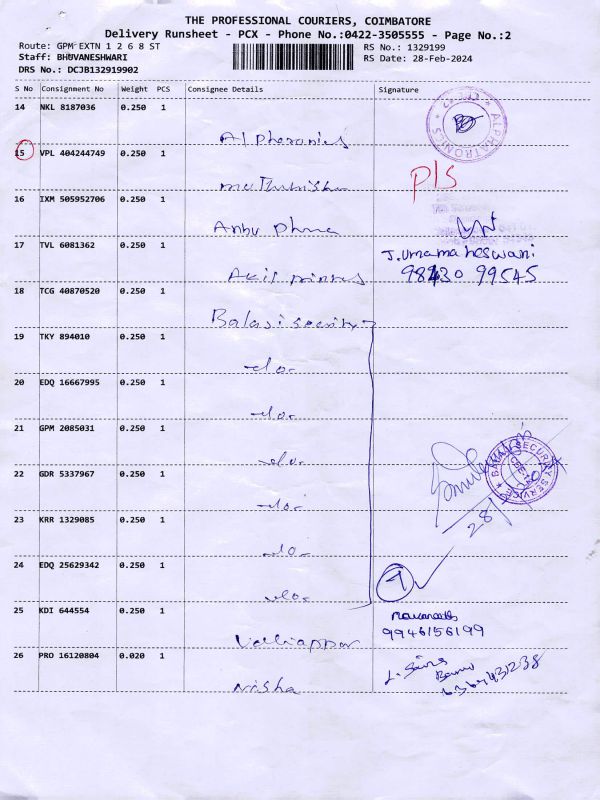 THE PROFESSIONAL COURIERS, COIMBATORE
Delivery Runsheet - PCX - Phone No.:0422-3505555 - Page No.:2
Route: GPM EXTN 1 2 6 8 ST
RS No.: 1329199
Staff: BHUVANESHWARI
RS Date: 28-Feb-2024
DRS No.: DCJB132919902
S No Consignment No Weight PCS Consignee Details Signature
14 NKL 8187036 0.250 1
ALPHATRONICS
15 VPL 404244749 0.250 1
P/S
16 IXM 505952706 0.250 1
Anbu Phone
17 TVL 6081362 0.250 1 J. Umamaheswari
Akil printes 98430 99545
18 TCG 40870520 0.250 1
Balaji security
19 TKY 894010 0.250 1
-do-
20 EDQ 16667995 0.250 1
-do-
21 GPM 2085031 0.250 1
-do- SECURITY SERVICES
22 GDR 5337967 0.250 1
-do- 28/
23 KRR 1329085 0.250 1
-do-
24 EDQ 25629342 0.250 1 7
-do-
25 KDI 644554 0.250 1
9946156199
Valliappar
26 PRO 16120804 0.020 1
Nisha